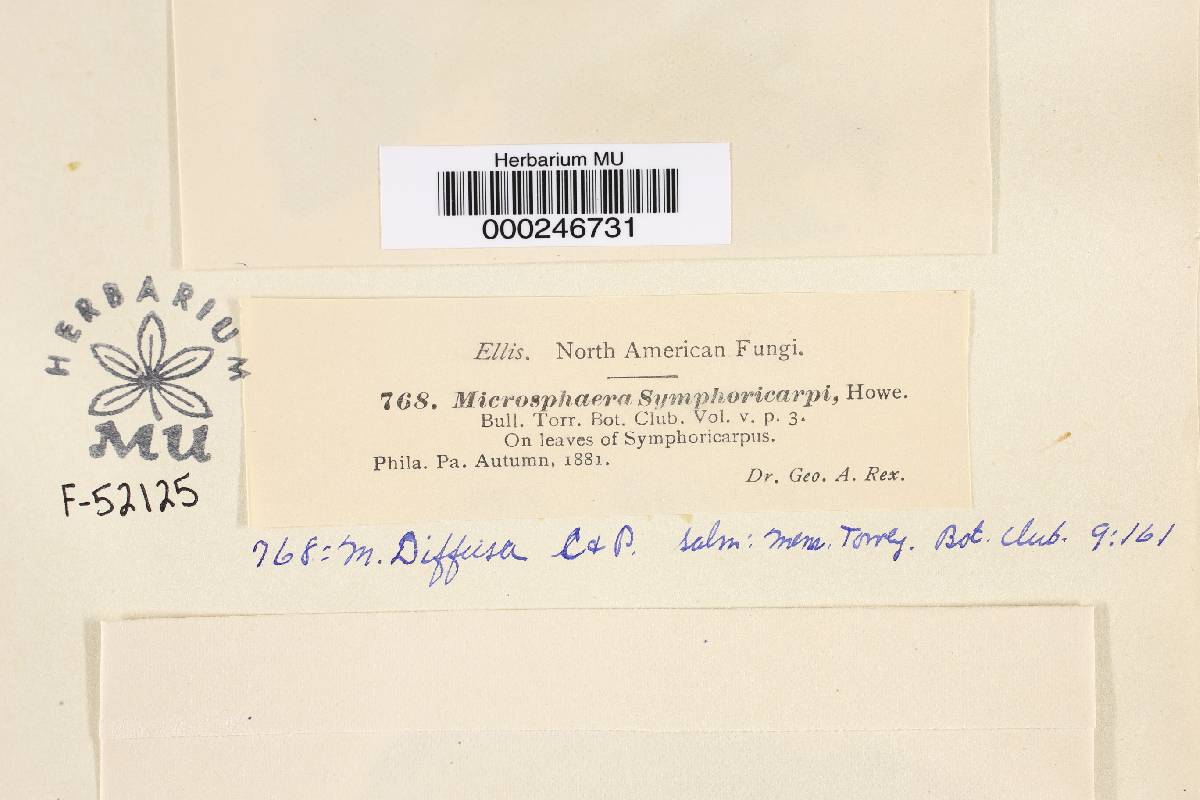 Herbarium MU
000246731
HERBARIUM
MU
F-52125
Ellis. North American Fungi.
768. Microsphaera Symphoricarpi, Howe.
Bull. Torr. Bot. Club. Vol. v. p. 3.
On leaves of Symphoricarpus.
Phila. Pa. Autumn, 1881.
Dr. Geo. A. Rex.
768 = M. Diffusa C & P. Salm: Mem. Torrey. Bot. Club. 9:161